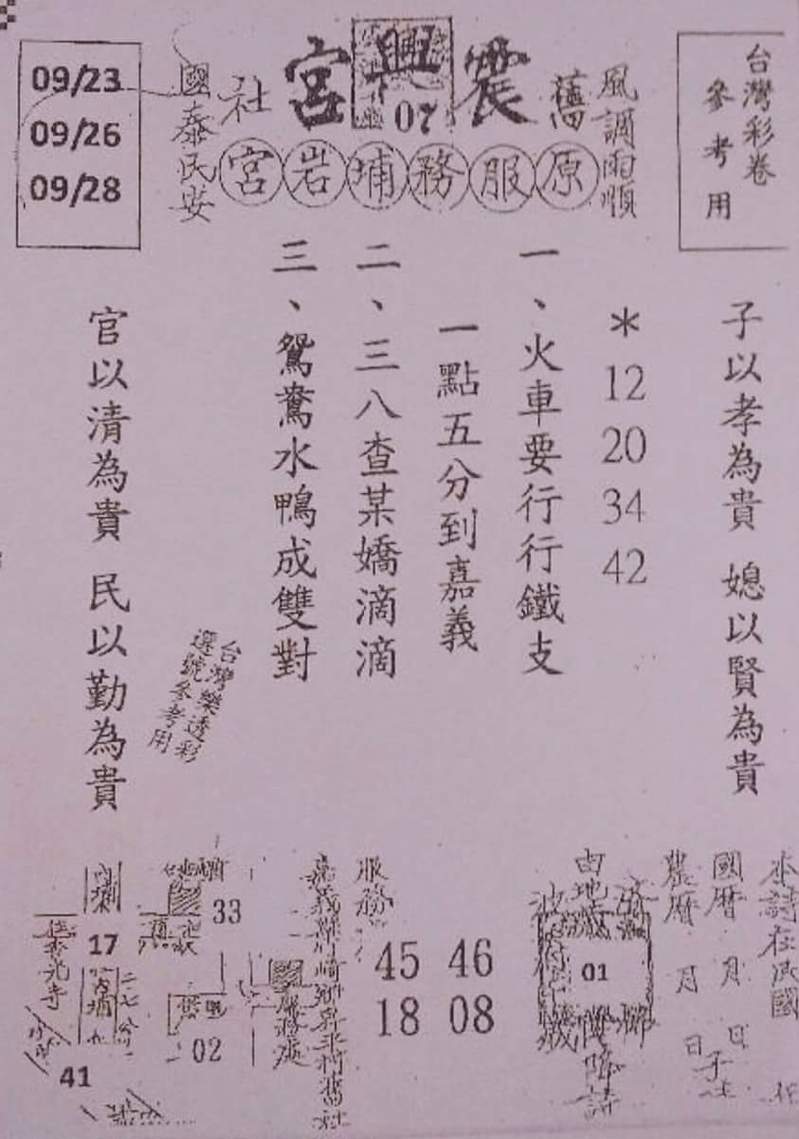 台灣彩卷
參考用
風調雨順
舊
震興宮
07
社
國泰民安
原服務埔岩宮
09/23
09/26
09/28
子以孝為貴 媳以賢為貴
*
12
20
34
42
一、火車要行行鐵支
一點五分到嘉義
二、三八查某嬌滴滴
三、鴛鴦水鴨成雙對
台灣樂透彩
選號參考用
官以清為貴 民以勤為貴
本詩在民國
國曆 月 日
農曆 月 日
01
降詩
46
08
45
18
服務
嘉義縣竹崎鄉昇平村舊社
33
02
17
41